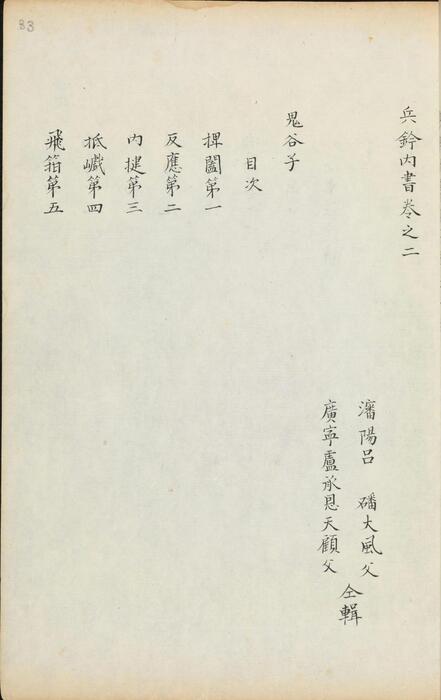 兵鈐內書卷之二
瀋陽呂 磻大風父
廣寧盧承恩天顧父
仝輯
鬼谷子
目次
捭闔第一
反應第二
內揵第三
抵巇第四
飛箝第五
83